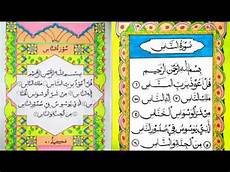 سُورَةُ النَّاسِ
بِسْمِ اللهِ الرَّحْمٰنِ الرَّحِيْمِ
قُلْ أَعُوْذُ بِرَبِّ النَّاسِ مَلِكِ النَّاسِ
إِلٰهِ النَّاسِ مِنْ شَرِّ الْوَسْوَاسِ الْخَنَّاسِ
الَّذِيْ يُوَسْوِسُ فِيْ صُدُوْرِ النَّاسِ
مِنَ الْجِنَّةِ وَالنَّاسِ
سُورَةُ النَّاسِ
بِسْمِ اللهِ الرَّحْمٰنِ الرَّحِيْمِ
قُلْ أَعُوْذُ بِرَبِّ النَّاسِ
مَلِكِ النَّاسِ إِلٰهِ النَّاسِ
مِنْ شَرِّ الْوَسْوَاسِ الْخَنَّاسِ
الَّذِيْ يُوَسْوِسُ فِيْ صُدُوْرِ النَّاسِ
مِنَ الْجِنَّةِ وَالنَّاسِ